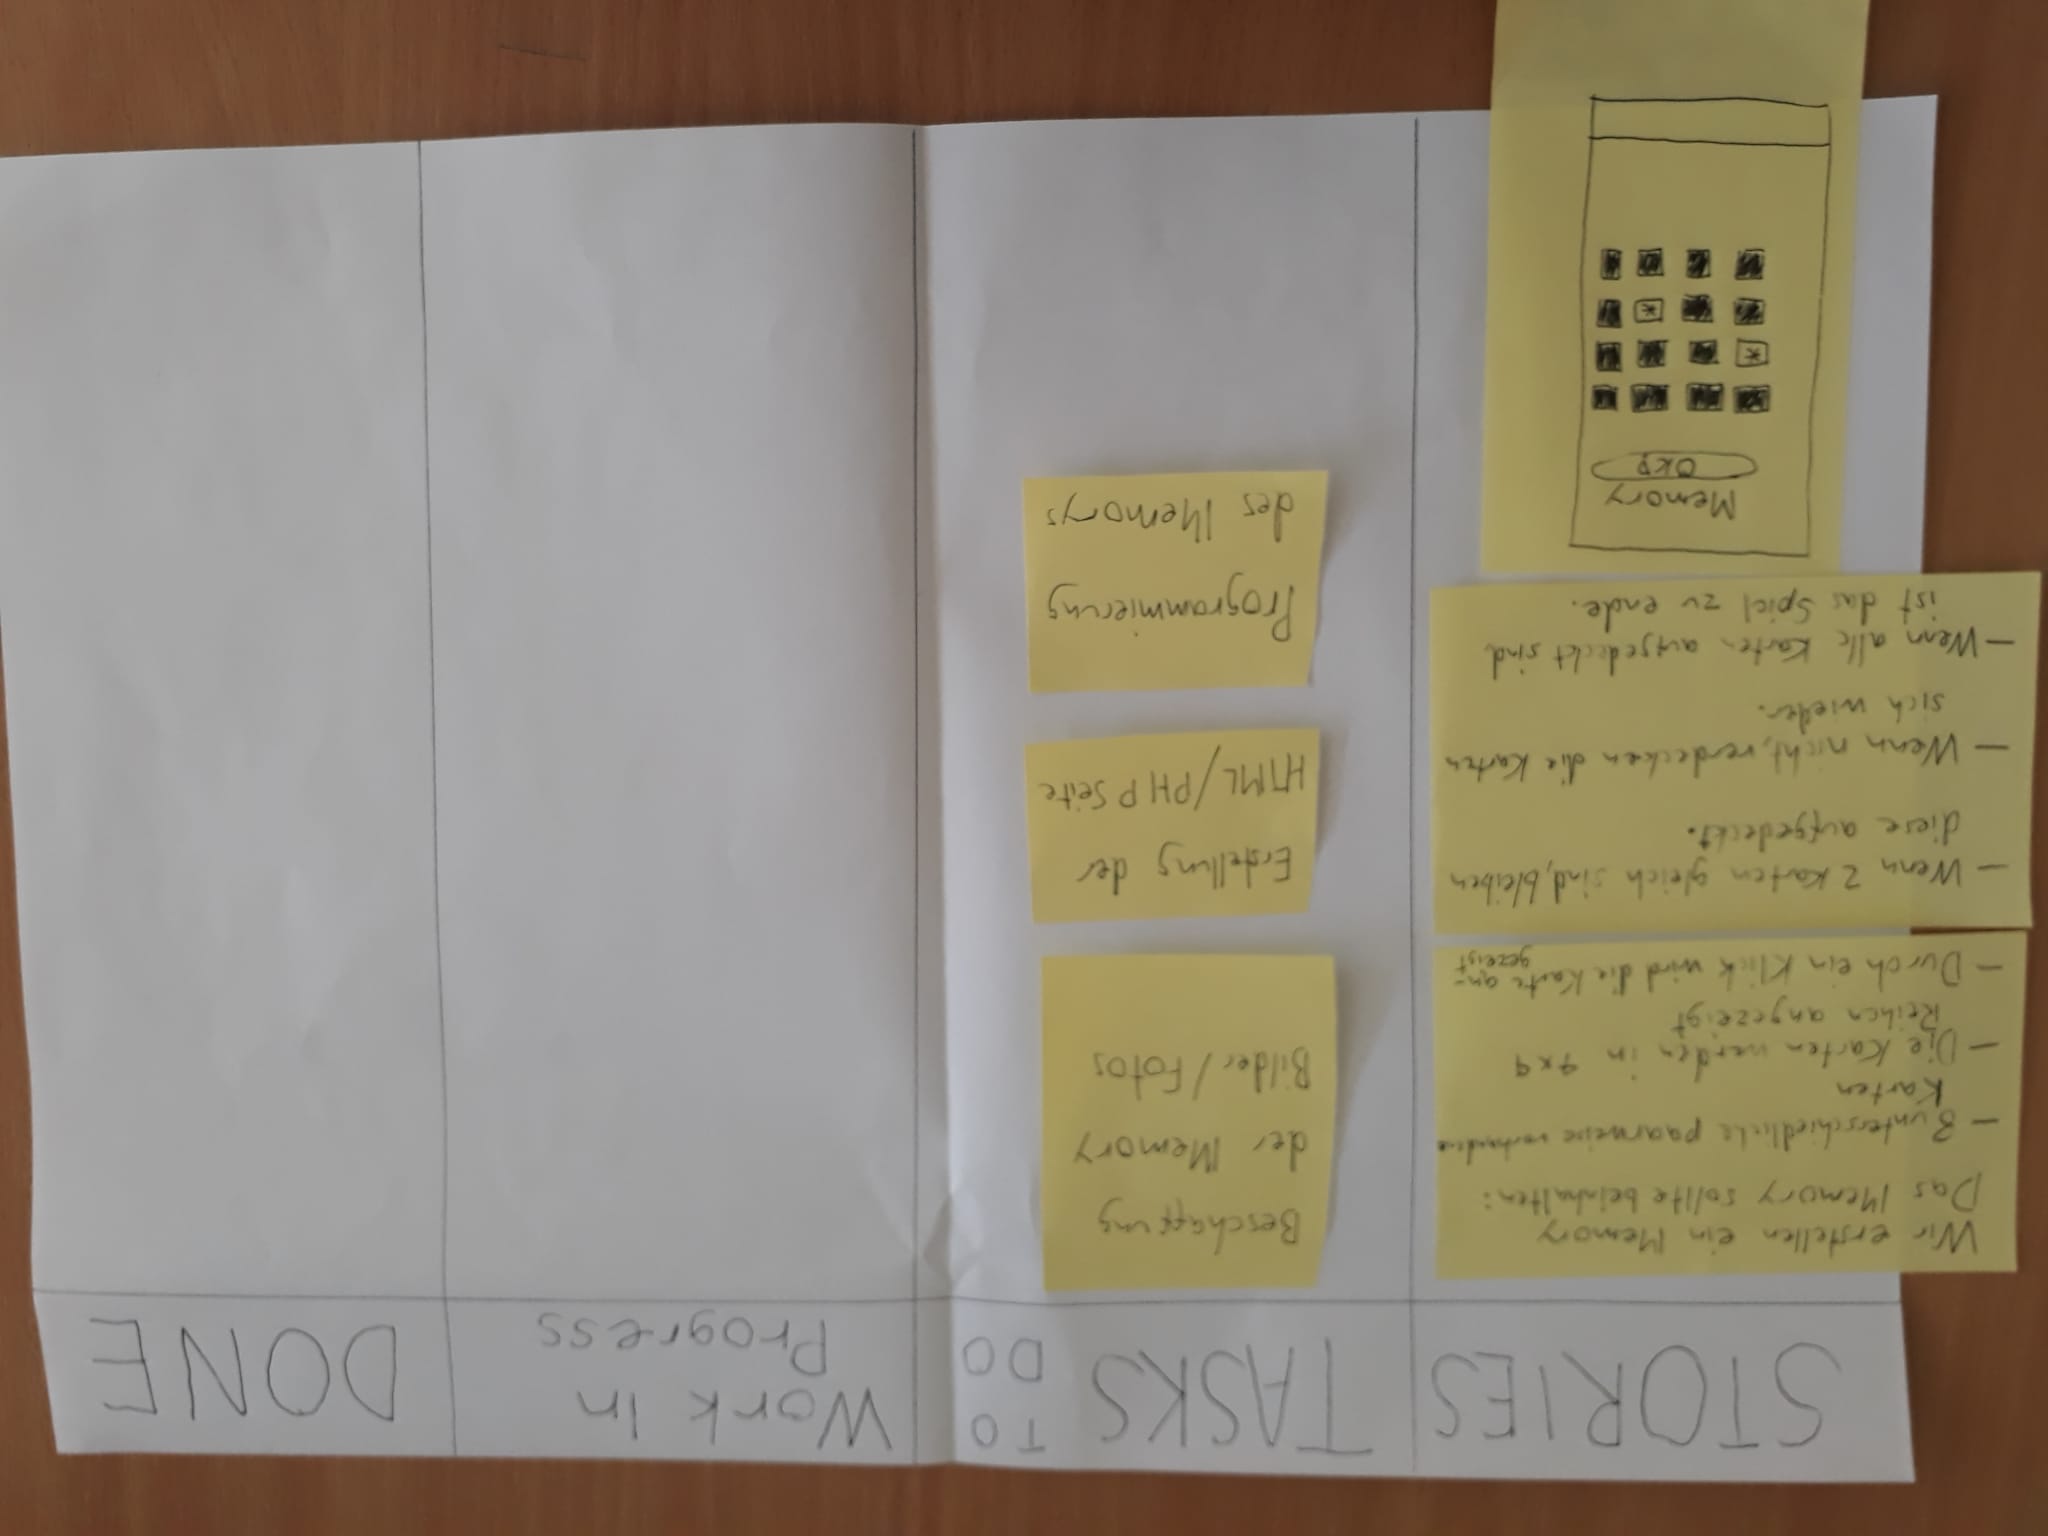 STORIES
TASKS
TO
DO
Work In
Progress
DONE
Wir erstellen ein Memory
Das Memory sollte beinhalten:
– 8 unterschiedliche paarweise vorhandene
Karten
– Die Karten werden in 4x4
Reihen angezeigt
– Durch ein Klick wird die Karte an-
gezeigt
– Wenn 2 Karten gleich sind, bleiben
diese aufgedeckt.
– Wenn nicht, verdecken die Karten
sich wieder.
– Wenn alle Karten aufgedeckt sind,
ist das Spiel zu ende.
Memory
OK?
Beschaffung
der Memory
Bilder/Fotos
Erstellung der
HTML/PHP Seite
Programmierung
des Memorys